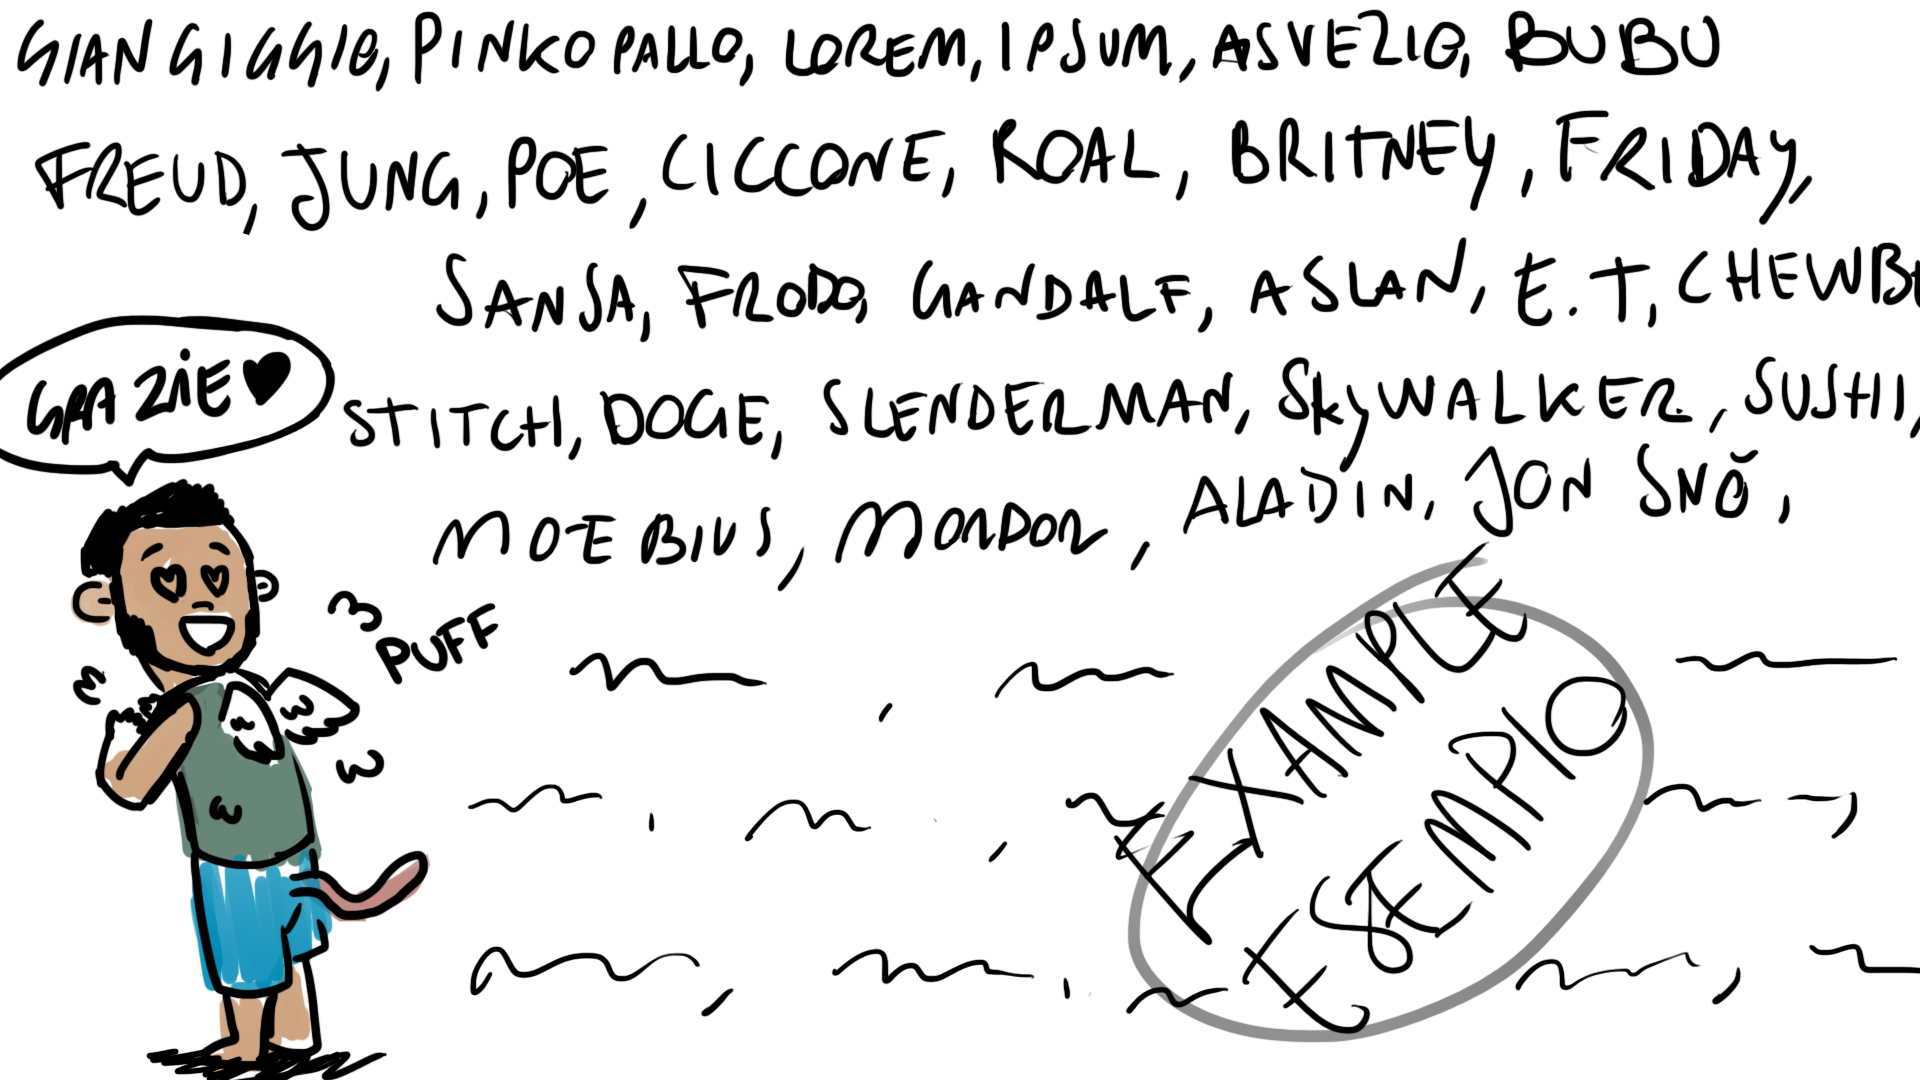 GIANGIGGIO, PINKO PALLO, LOREM, IPSUM, ASVEZIO, BUBU
FREUD, JUNG, POE, CICCONE, ROAL, BRITNEY, FRIDAY,
SANSA, FRODO, GANDALF, ASLAN, E.T, CHEWB
GRAZIE ♥
STITCH, DOGE, SLENDERMAN, SKYWALKER, SUSHI,
MOEBIUS, MORDOR, ALADIN, JON SNŎ,
PUFF
EXAMPLE
ESEMPIO